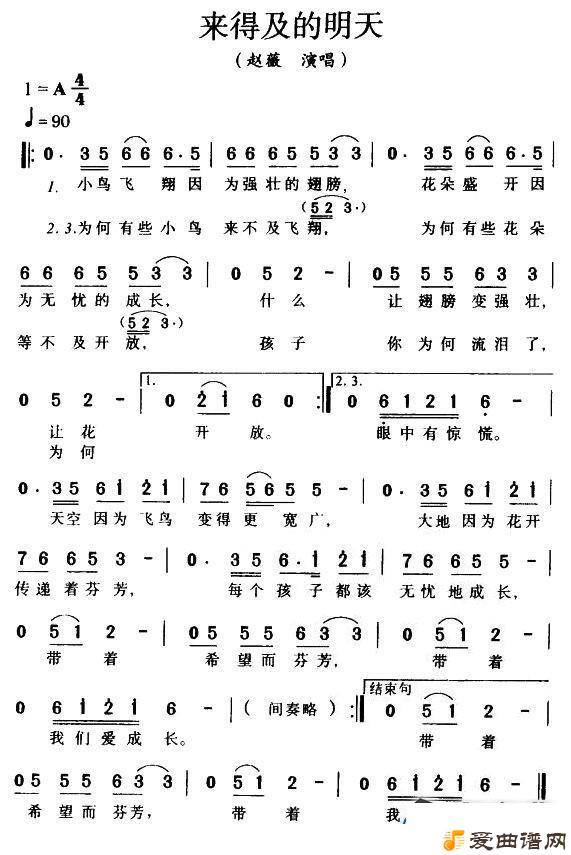 来得及的明天
（赵薇 演唱）
1=A 4/4
♩=90
‖: 0· 35 66 6·5 | 666 5 533 | 0· 35 66 6·5 |
1. 小鸟飞 翔因 为强壮的翅膀， 花朵盛 开因
(523·)
2.3.为何有些小鸟 来不及飞翔， 为何有些花朵
66 65 533 | 0 52 - | 05 55 633 |
为无忧的成长， 什么 让翅膀变强壮，
(523·)
等不及开放， 孩子 你为何流泪了，
0 5 2 - | 1. 0 2̇1̇ 6 0 :‖ 2.3. 0 6121 6 - |
让花 开 放。 眼中有惊慌。
为何
0· 35 61̇ 2̇1̇ | 76 565 5 - | 0· 35 61̇ 2̇1̇ |
天空因为飞鸟 变得更 宽广， 大地因为花开
76 65 3 - | 0· 35 6·1̇ 2̇1̇ | 76 65 5 - |
传递着芬芳， 每个孩子都该 无忧地成长，
0 51 2 - | 05 55 633 | 0 51 2 - |
带 着 希望而芬芳， 带 着
0 61̇2̇1̇ 6 - | （ 间奏略 ） :‖ 结束句 0 51 2 - |
我们爱成长。 带 着
05 55 633 | 0 51 2 - | 0 61̇2̇1̇ 6 - ‖
希望而芬芳， 带 着 我，
爱曲谱网